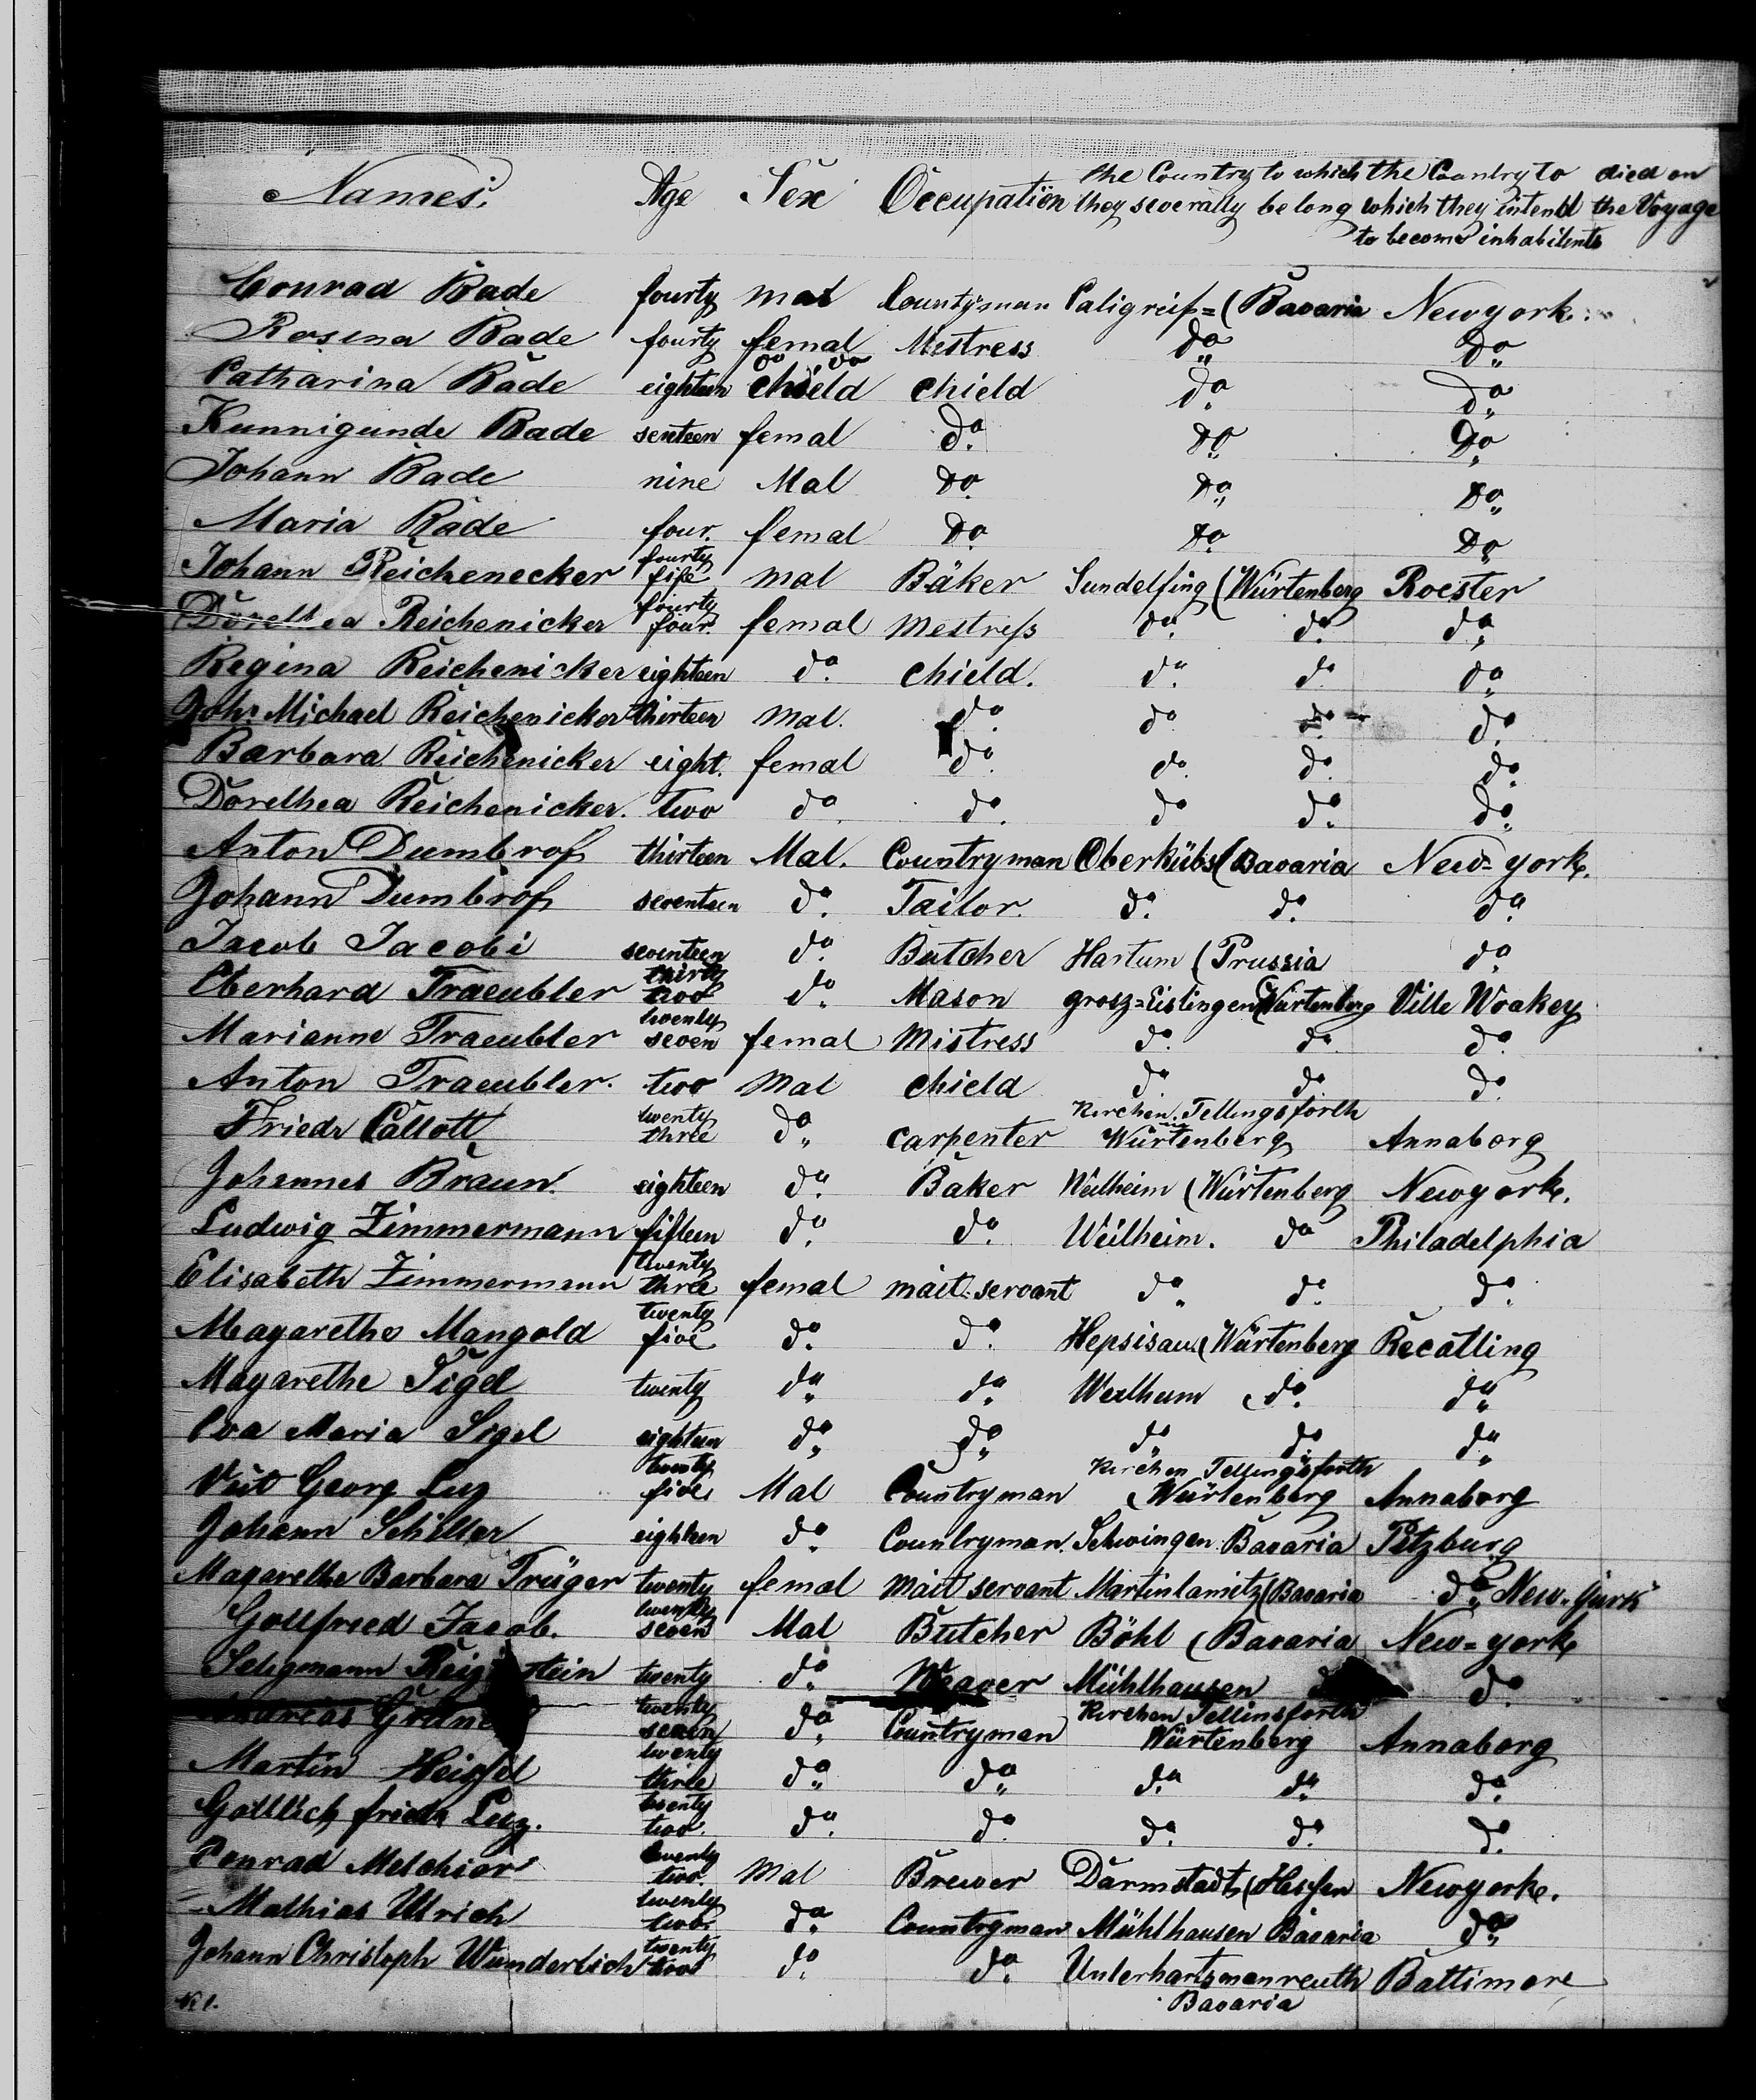 Names. Age Sex Occupation the Country to which they severally belong the Country to which they intend to become inhabitents died on the Voyage
Conrad Bade fourty mal Countyman Caligreif=(Bavaria Newyork.
Rosina Bade fourty femal Mestress do do
Catharina Bade eighteen chield do do chield do do
Kunnigunde Bade senteen femal do do do
Johann Bade nine Mal do do do
Maria Bade four. femal do do do
Johann Reichenecker fourty fife mal Bäker Sundelfing (Würtenberg Roester
Reichenicker fourty four. femal Mestress do do do
Regina Reichenicker eighteen do chield. do do do
Joh: Michael Reichenicker thirteen mal. do do do do
Barbara Reichenicker eight. femal do do do do
Dorethea Reichenicker. two do do do do do
Anton Dumbrof thirteen Mal. Countryman Oberkübs (Bavaria New=york.
Johann Dumbrof seventeen do Tailor. do do do
Jacob Jacobi seventeen do Butcher Hartum (Prussia do
Eberhard Traeubler thirty two do Mason grosz=Eislingen (Würtenberg Ville Woakey
Marianne Traeubler twenty seven femal Mistress do do do
Anton Traeubler. two Mal chield do do do
Friedr Callott twenty three do carpenter Kirchen Tellingsforth Würtenberg Annaborg
Johannes Braun. eighteen do Baker Weilheim (Würtenberg Newyork.
Ludwig Zimmermann fifteen do do Weilheim. do Philadelphia
Elisabeth Zimmermann twenty three femal mait=servant do do do
Magarethe Mangold twenty five do do Hepsisau (Würtenberg Recatling
Magarethe Sigel twenty do do Weilheim do do
Eva Maria Sigel eighteen do do do do do
Veit Georg Luz twenty five Mal Countryman Kirchen Tellingsforth (Würtenberg Annaborg
Johann Schiller eighteen do Countryman. Schwingen Bavaria Petzburg
Magarethe Barbara Träger twenty femal mait servant Martinlamitz (Bavaria do New=Yurk
Gottfried Jacob. twenty seven Mal Butcher Böhl (Bavaria New=york
Seligmann twenty do Weaver Mühlhausen do
twenty seven do Countryman Kirchen Tellinsforth Würtenberg Annaborg
Martin Heissel twenty three do do do do do
Gottlieb friedr Luz. twenty two. do do do do do
Conrad Melchior twenty two. Mal Brewer Darmstadt (Hessen Newyork.
Mathias Ulrich twenty two. do Countryman Mühlhausen Bavaria do
Johann Christoph Wunderlich twenty two do do Unterhartsmanreuth Bavaria Baltimore
No 1.